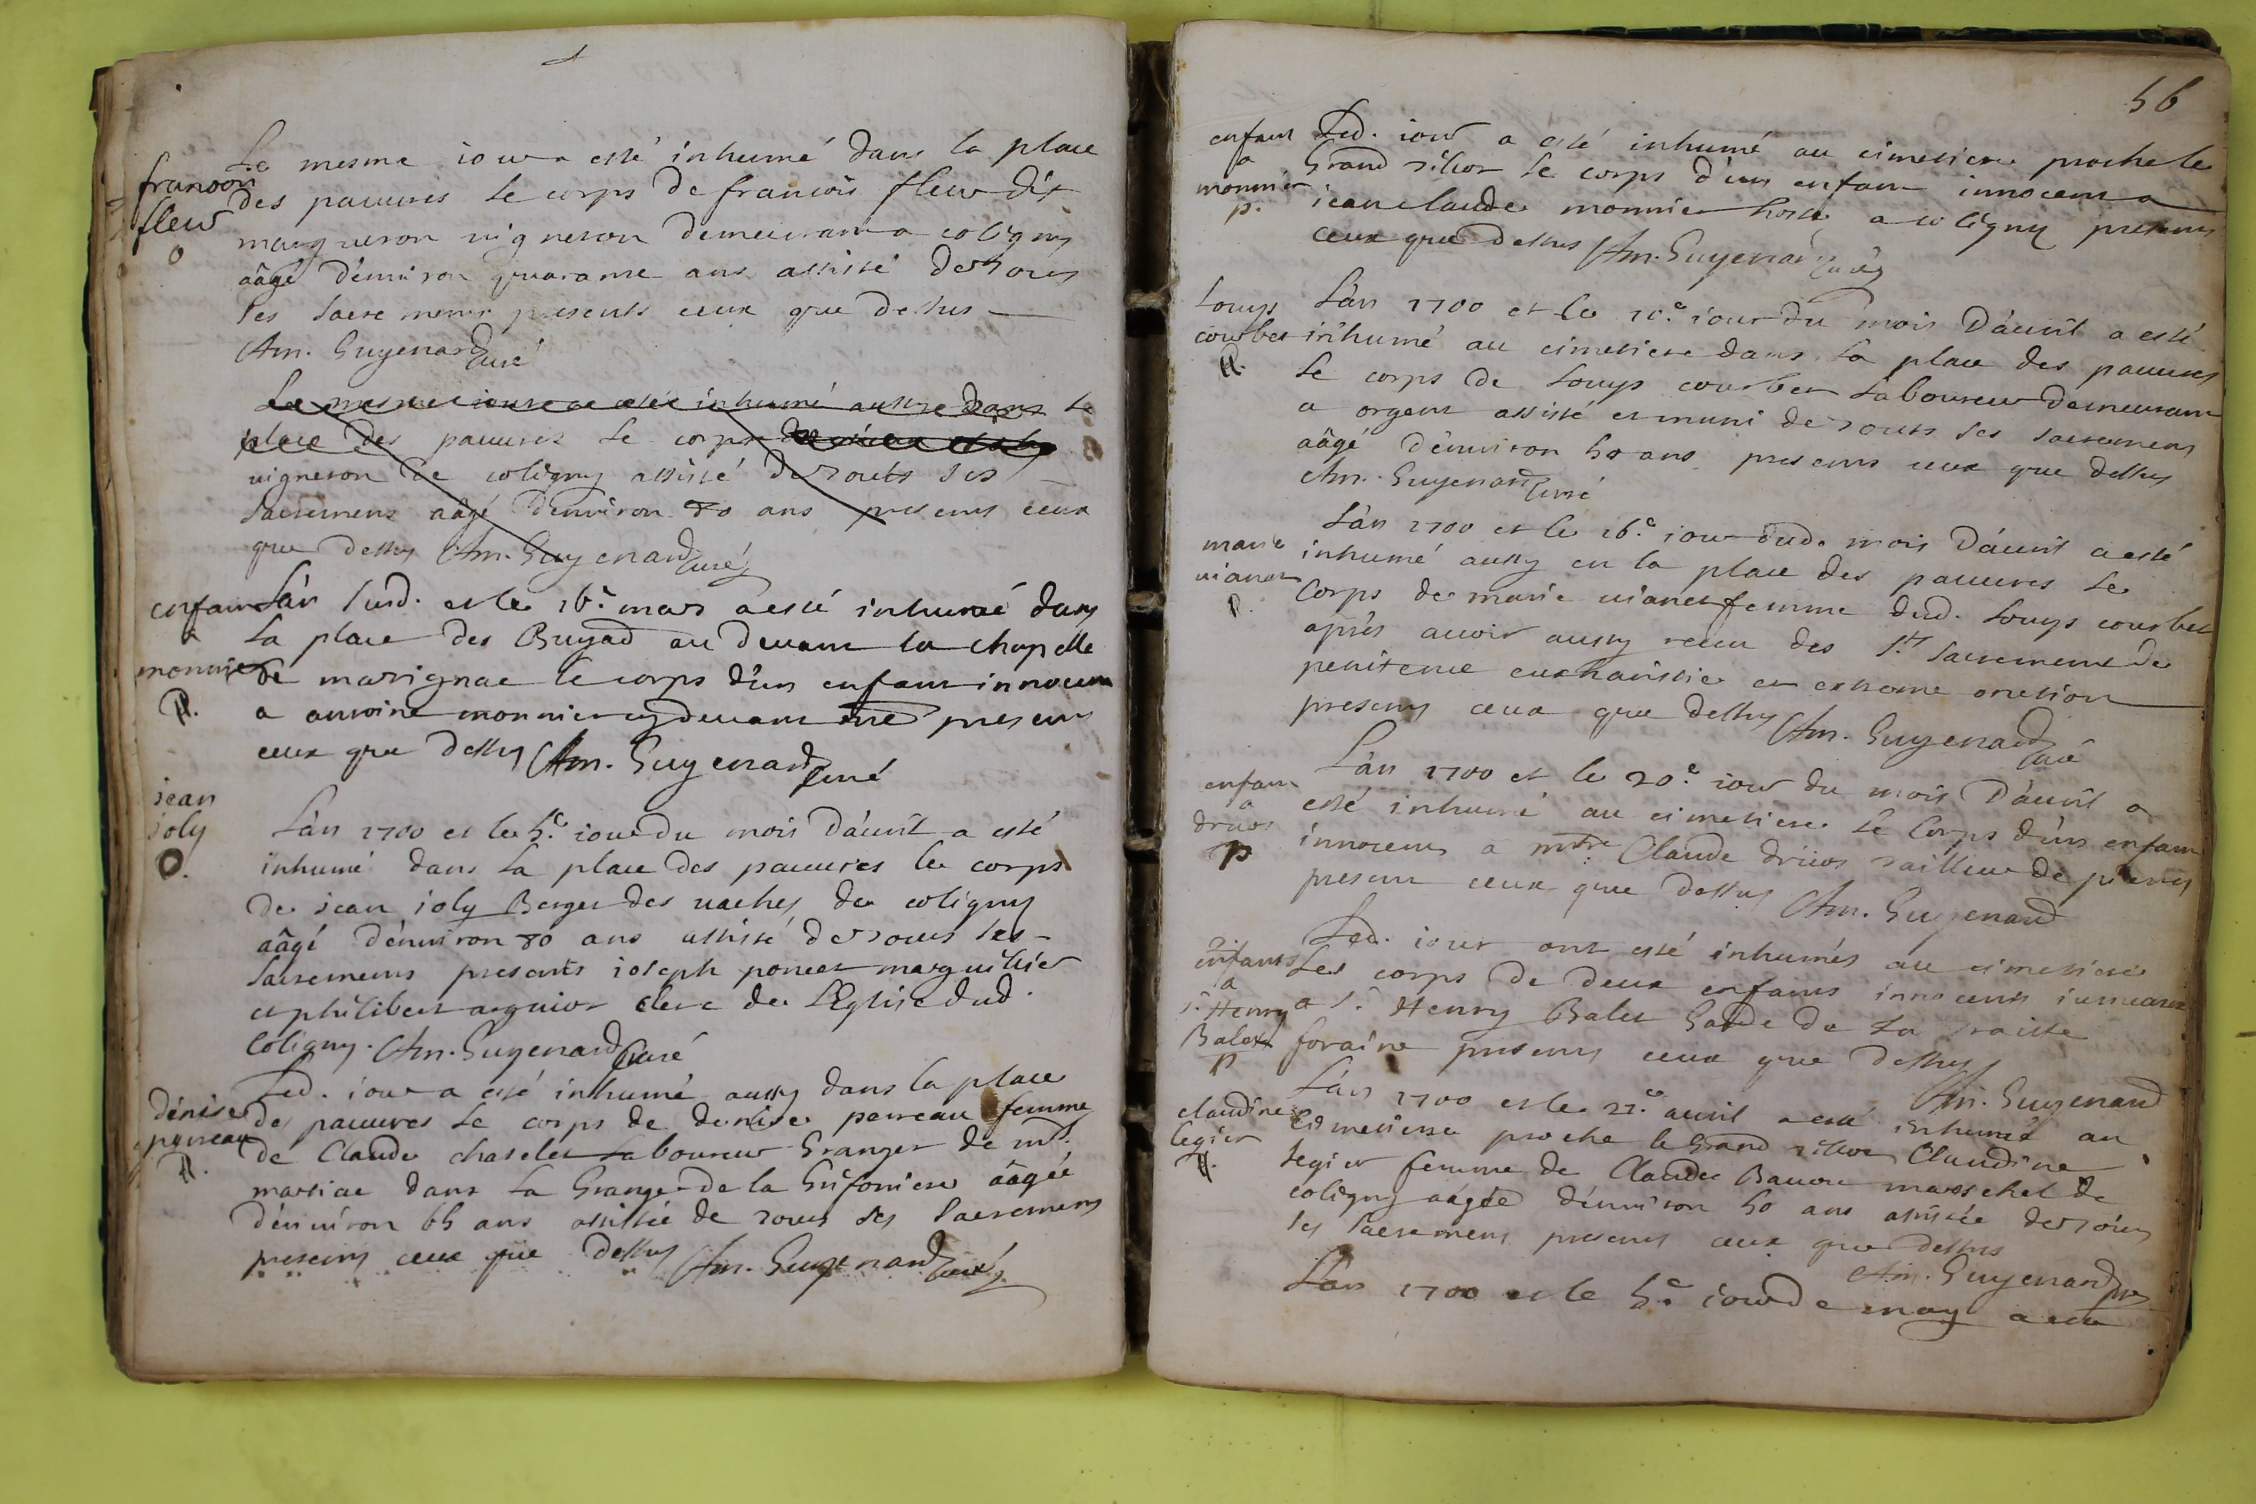 francois
fleur
o
Le mesme iour a esté inhumé dans la place
des pauures le corps de francois fleur dit
margueron uigneron demeurant a coligny
aâgé d'enuiron quarante ans assisté de touts
ses sacremens presents ceux que dessus
Am. Guyenard curé
Le mesme iour a esté inhumé aussy dans la
place des pauures le corps de
uigneron de coligny assisté de touts ses
sacremens aâgé denuiron 80 ans presens ceux
que dessus Am. Guyenard curé
enfant
a
monnier
p.
L'an susd. et le 16.e mars a esté inhumé dans
la place des Buyad au deuant la chapelle
de marignac le corps d'un enfant innocent
a antoine monnier cy deuant me presens
ceux que dessus Am. Guyenard curé
jean
joly
O.
L'an 1700 et le 5.e iour du mois d'auril a esté
inhumé dans la place des pauures le corps
de jean joly Berger des uaches de coligny
aâgé d'enuiron 80 ans assisté de touts ses
sacremens presents joseph poncet marguillier
et philibert arguior clerc de L'Eglise dud.
Coligny. Am. Guyenard curé
denise
perreau
p.
Led. iour a esté inhumé aussy dans la place
des pauures le corps de denise perreau femme
de Claude chatelet laboureur Granger de mr.
martiae dans la Grange de la Grifoniere aâgée
d'enuiron 65 ans assistée de touts ses sacremens
presens ceux que dessus Am. Guyenard curé
56
enfant
a
monnier
p.
Led. iour a esté inhumé au cimetiere proche le
Grand tillior le corps d'un enfant innocent a
jean claude monnier hoste a coligny presens
ceux que dessus Am. Guyenard curé
Louys
courbet
p.
L'an 1700 et le 10.e iour du mois D'auril a esté
inhumé au cimetiere dans la place des pauures
le corps de Louys courbet laboureur demeurant
a orgent assisté et muni de touts ses sacremens
aâgé d'enuiron 50 ans presens ceux que dessus
Am. Guyenard curé
marie
uianet
p.
L'an 1700 et le 16.e iour dud. mois D'auril a esté
inhumé aussy en la place des pauures le
Corps de marie uianet femme dud. Louys courbet
après auoir aussy receu des sts sacremens de
penitence euchairistie et extreme onction
presens ceux que dessus Am. Guyenard curé
enfant
a
driuos
p
L'an 1700 et le 20.e iour du mois D'auril a
esté inhumé au cimetiere le Corps d'un enfant
innocens a mtre Claude driuos tailleur de pieres
present ceux que dessus Am. Guyenard
enfants
a
s.r Henry
Balet
p
Led. iour ont esté inhumés au cimetiere
Les corps de deux enfants innocents iumeaux
a s.r Henry Balet Garde de la traitte
foraine presens ceux que dessus
Am. Guyenard
claudine
legier
p.
L'an 1700 et le 22.e auril a esté inhumé au
cimetiere proche le Grand tillior Claudine
legier femme de Claude Bauou mareschel de
coligny aâgée d'enuiron 50 ans assistée de touts
ses sacremens presens ceux que dessus
Am. Guyenard
L'an 1700 et le 5.e iour de may a esté